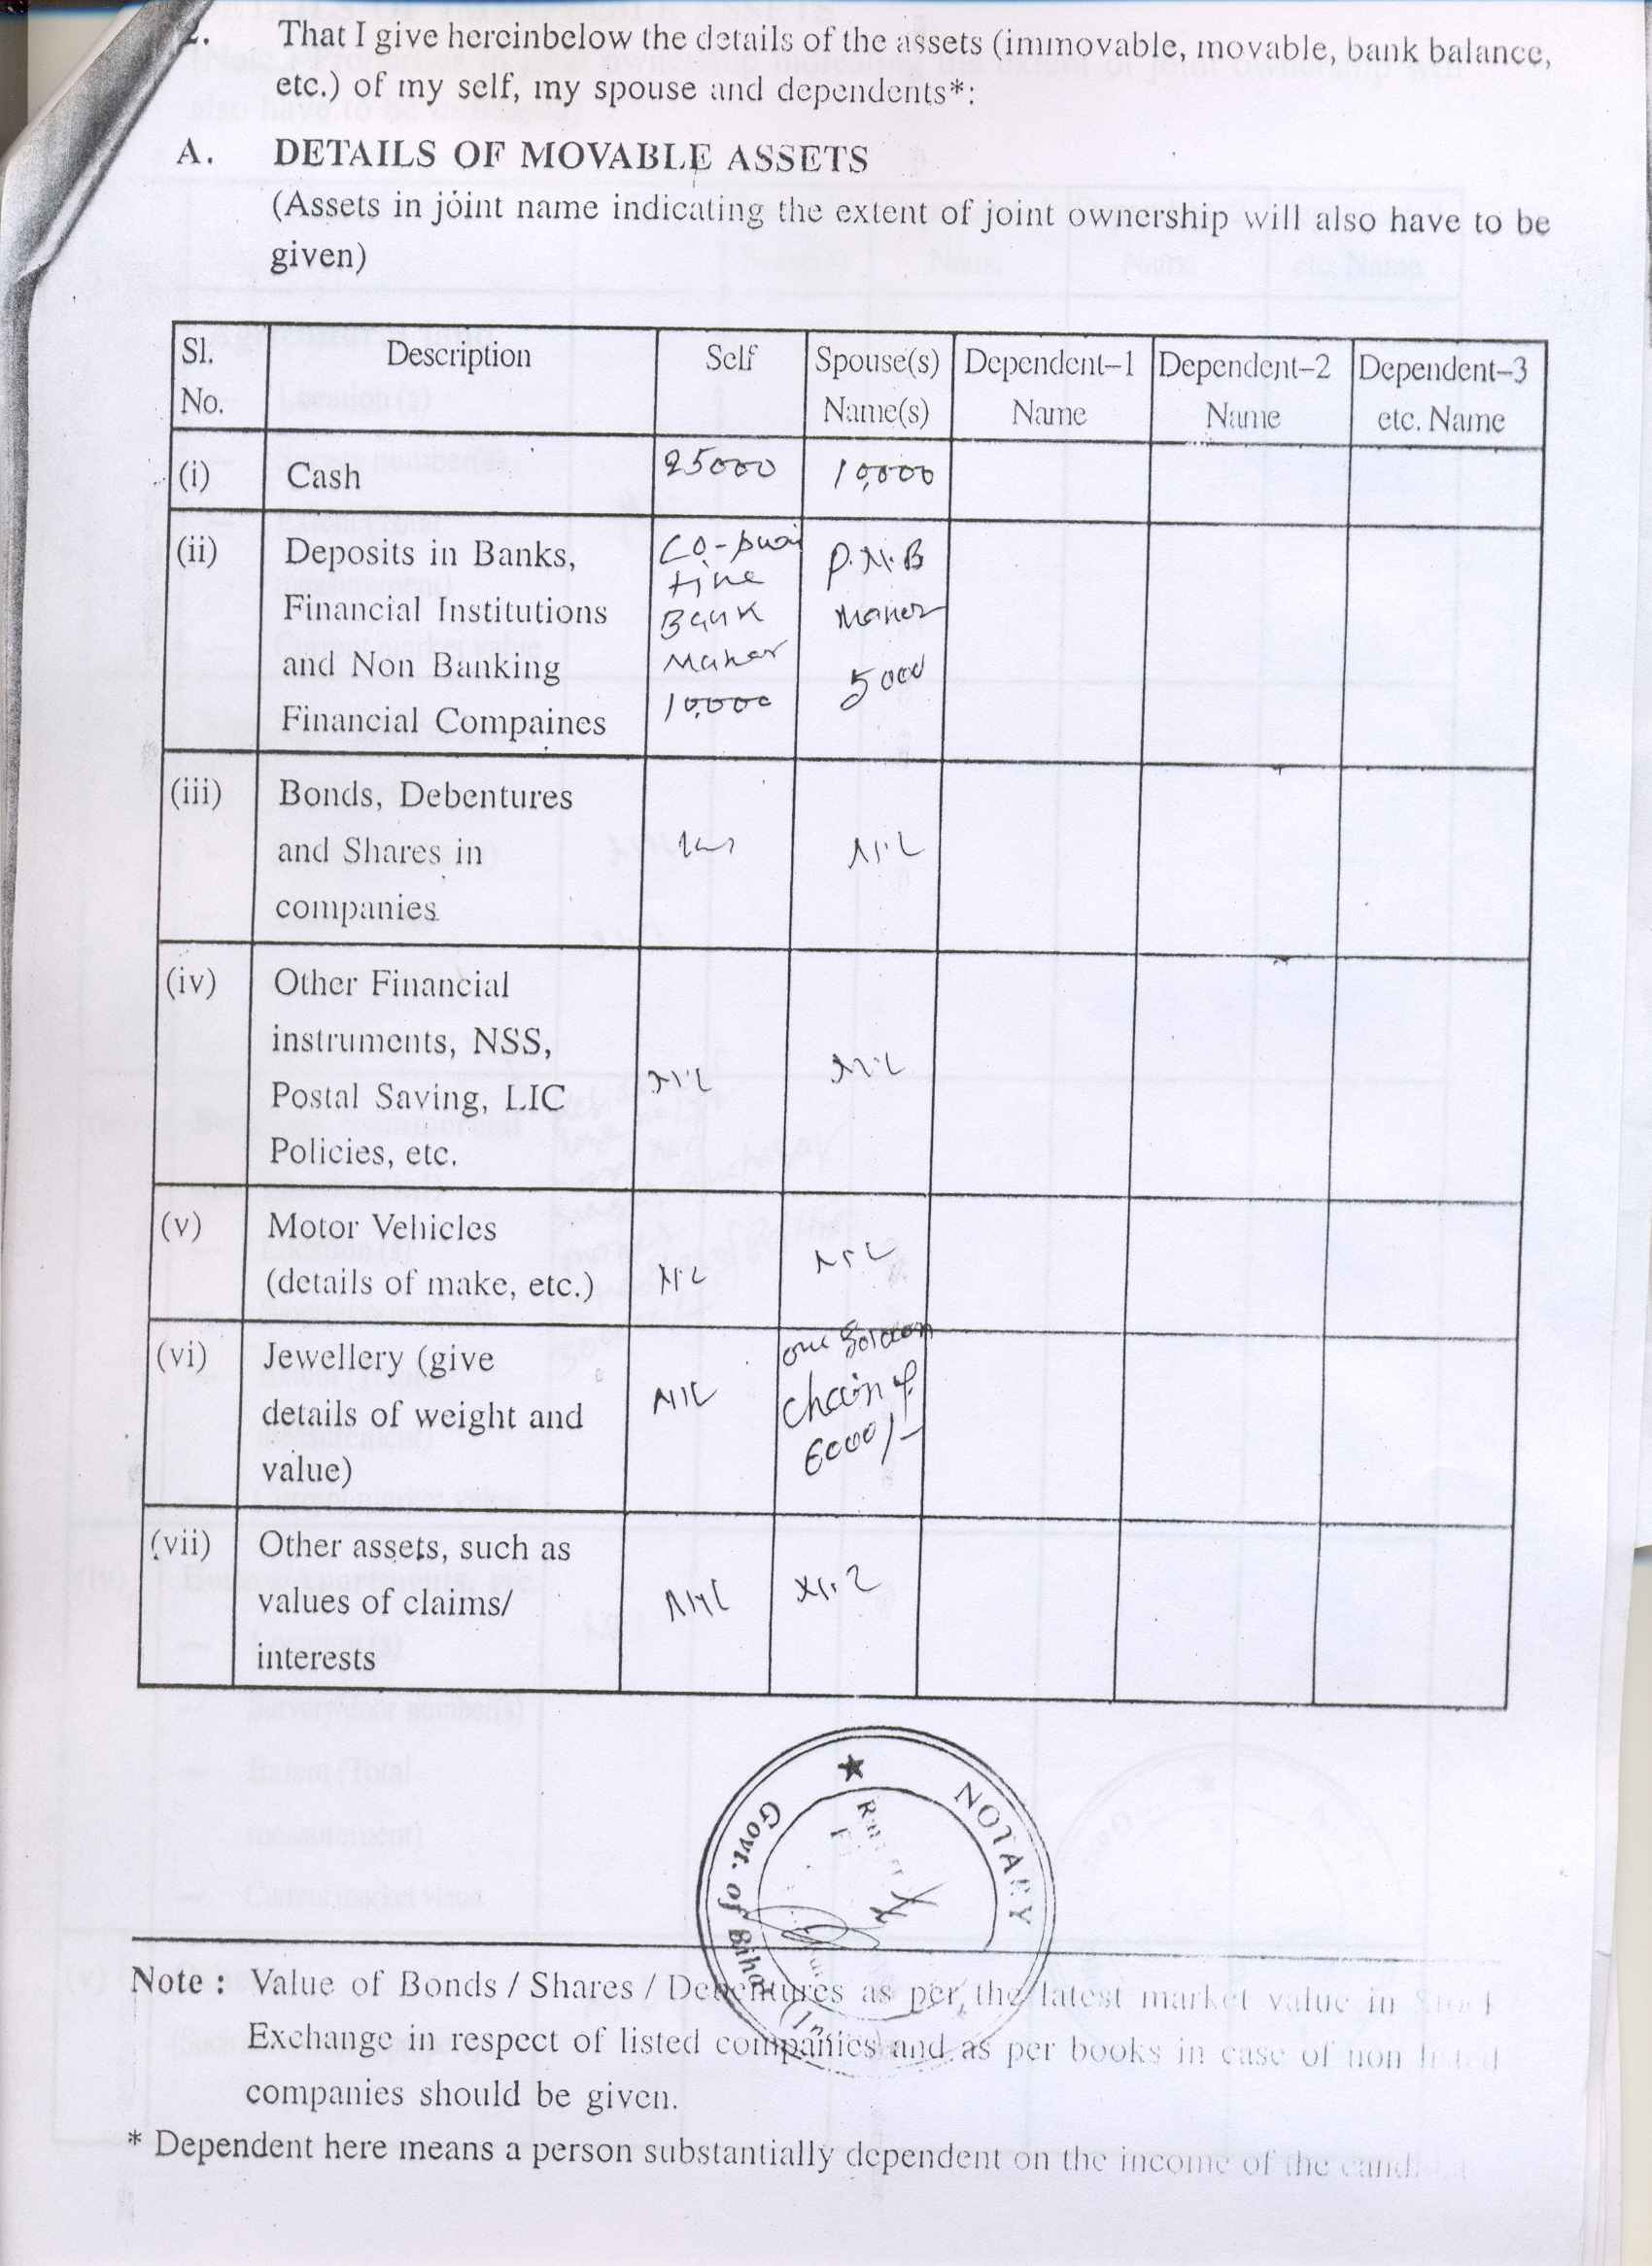 2. That I give hereinbelow the details of the assets (immovable, movable, bank balance,
etc.) of my self, my spouse and dependents*:
A. DETAILS OF MOVABLE ASSETS
(Assets in joint name indicating the extent of joint ownership will also have to be
given)
Sl. No. Description Self Spouse(s) Name(s) Dependent–1 Name Dependent–2 Name Dependent–3 etc. Name
(i) Cash 25000 10,000
(ii) Deposits in Banks,
Financial Institutions
and Non Banking
Financial Compaines
Bank
Maner
10,000
P.N.B
Maner
5000
(iii) Bonds, Debentures
and Shares in
companies
NIL
(iv) Other Financial
instruments, NSS,
Postal Saving, LIC
Policies, etc.
NIL NIL
(v) Motor Vehicles
(details of make, etc.)
NIL NIL
(vi) Jewellery (give
details of weight and
value)
NIL
one Golden
chain of
6000/-
(vii) Other assets, such as
values of claims/
interests
NIL NIL
NOTARY
Govt. of Bihar
Note : Value of Bonds / Shares / Debentures as per the latest market value in Stock
Exchange in respect of listed companies and as per books in case of non listed
companies should be given.
* Dependent here means a person substantially dependent on the income of the